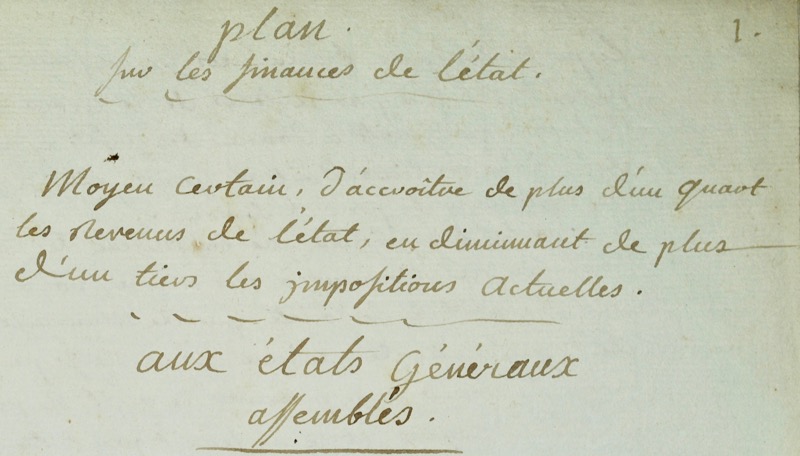 plan.
1.
sur les finances de l'état.
Moyen Certain, d'accroître de plus d'un quart
les Revenus de l'état, en diminuant de plus
d'un tiers les impositions Actuelles.
aux états Généraux
assemblés.